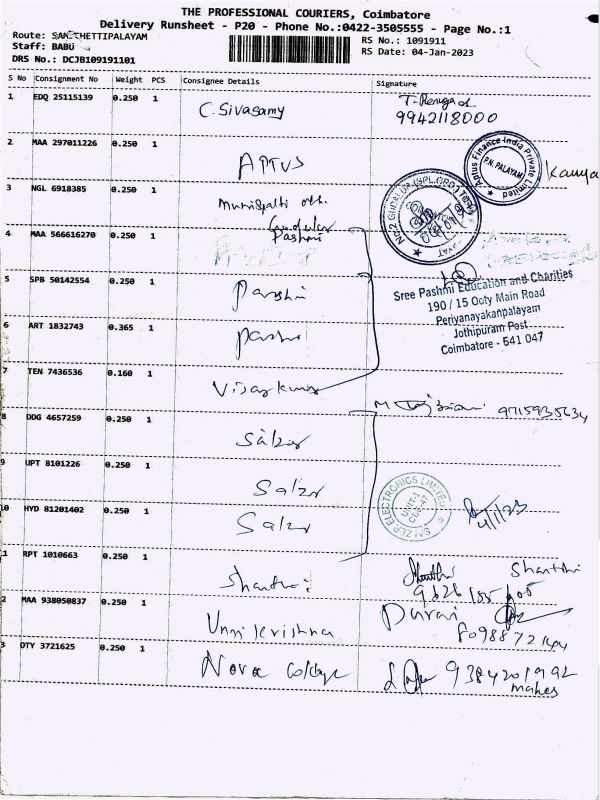 THE PROFESSIONAL COURIERS, Coimbatore
Delivery Runsheet - P20 - Phone No.:0422-3505555 - Page No.:1
Route: SAMICHETTIPALAYAM
Staff: BABU
DRS No.: DCJB109191101
RS No.: 1091911
RS Date: 04-Jan-2023
S No Consignment No Weight PCS Consignee Details Signature
1 EDQ 25115139 0.250 1
C. Sivasamy
9942118000
2 MAA 297011226 0.250 1
APTUS
Aptus Finance India Private Limited
P.N. PALAYAM
3 NGL 6918385 0.250 1
Gudalur
4 MAA 566616270 0.250 1
Pashmi
5 SPB 50142554 0.250 1
Sree Pashmi Education and Charities
190 / 15 Ooty Main Road
Periyanayakanpalayam
Jothipuram Post
Coimbatore - 641 047
6 ART 1832743 0.365 1
7 TEN 7436536 0.160 1
Vijay kumar
9715935634
8 DDG 4657259 0.250 1
Salzer
9 UPT 8101226 0.250 1
Salzer
SALZER ELECTRONICS LIMITED
UNIT-I
CBE-47
10 HYD 81201402 0.250 1
Salzer
4/1/23
11 RPT 1010663 0.250 1
Shanthi
Shanthi
2 MAA 938050837 0.250 1
Unnikrishna
Durai
3 OTY 3721625 0.250 1
Nova College
9384201992